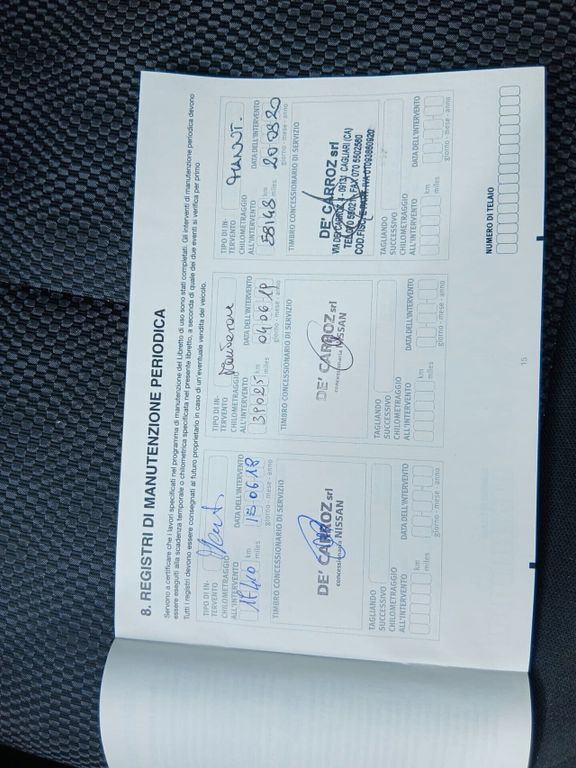 8. REGISTRI DI MANUTENZIONE PERIODICA
Servono a certificare che i lavori specificati nel programma di manutenzione del Libretto di uso sono stati completati. Gli interventi di manutenzione periodica devono
essere eseguiti alla scadenza temporale o chilometrica specificata nel presente libretto, a seconda di quale dei due eventi si verifica per primo
Tutti i registri devono essere consegnati al futuro proprietario in caso di un eventuale vendita del veicolo.
TIPO DI IN-
TERVENTO
CHILOMETRAGGIO
ALL'INTERVENTO
DATA DELL'INTERVENTO
km
miles
15 06 18
giorno - mese - anno
TIMBRO CONCESSIONARIO DI SERVIZIO
DE' CARROZ srl
concessionaria NISSAN
TAGLIANDO
SUCCESSIVO
CHILOMETRAGGIO
ALL'INTERVENTO
DATA DELL'INTERVENTO
km
miles
giorno - mese - anno
TIPO DI IN-
TERVENTO
CHILOMETRAGGIO
ALL'INTERVENTO
DATA DELL'INTERVENTO
39025
km
miles
04 06 19
giorno - mese - anno
TIMBRO CONCESSIONARIO DI SERVIZIO
DE' CARROZ srl
concessionaria NISSAN
TAGLIANDO
SUCCESSIVO
CHILOMETRAGGIO
ALL'INTERVENTO
DATA DELL'INTERVENTO
km
miles
giorno - mese - anno
TIPO DI IN-
TERVENTO
CHILOMETRAGGIO
ALL'INTERVENTO
DATA DELL'INTERVENTO
58148
km
miles
20 08 20
giorno - mese - anno
TIMBRO CONCESSIONARIO DI SERVIZIO
DE' CARROZ srl
CAGLIARI (CA)
FAX 070 5502560
TAGLIANDO
SUCCESSIVO
CHILOMETRAGGIO
ALL'INTERVENTO
DATA DELL'INTERVENTO
km
miles
giorno - mese - anno
NUMERO DI TELAIO
15